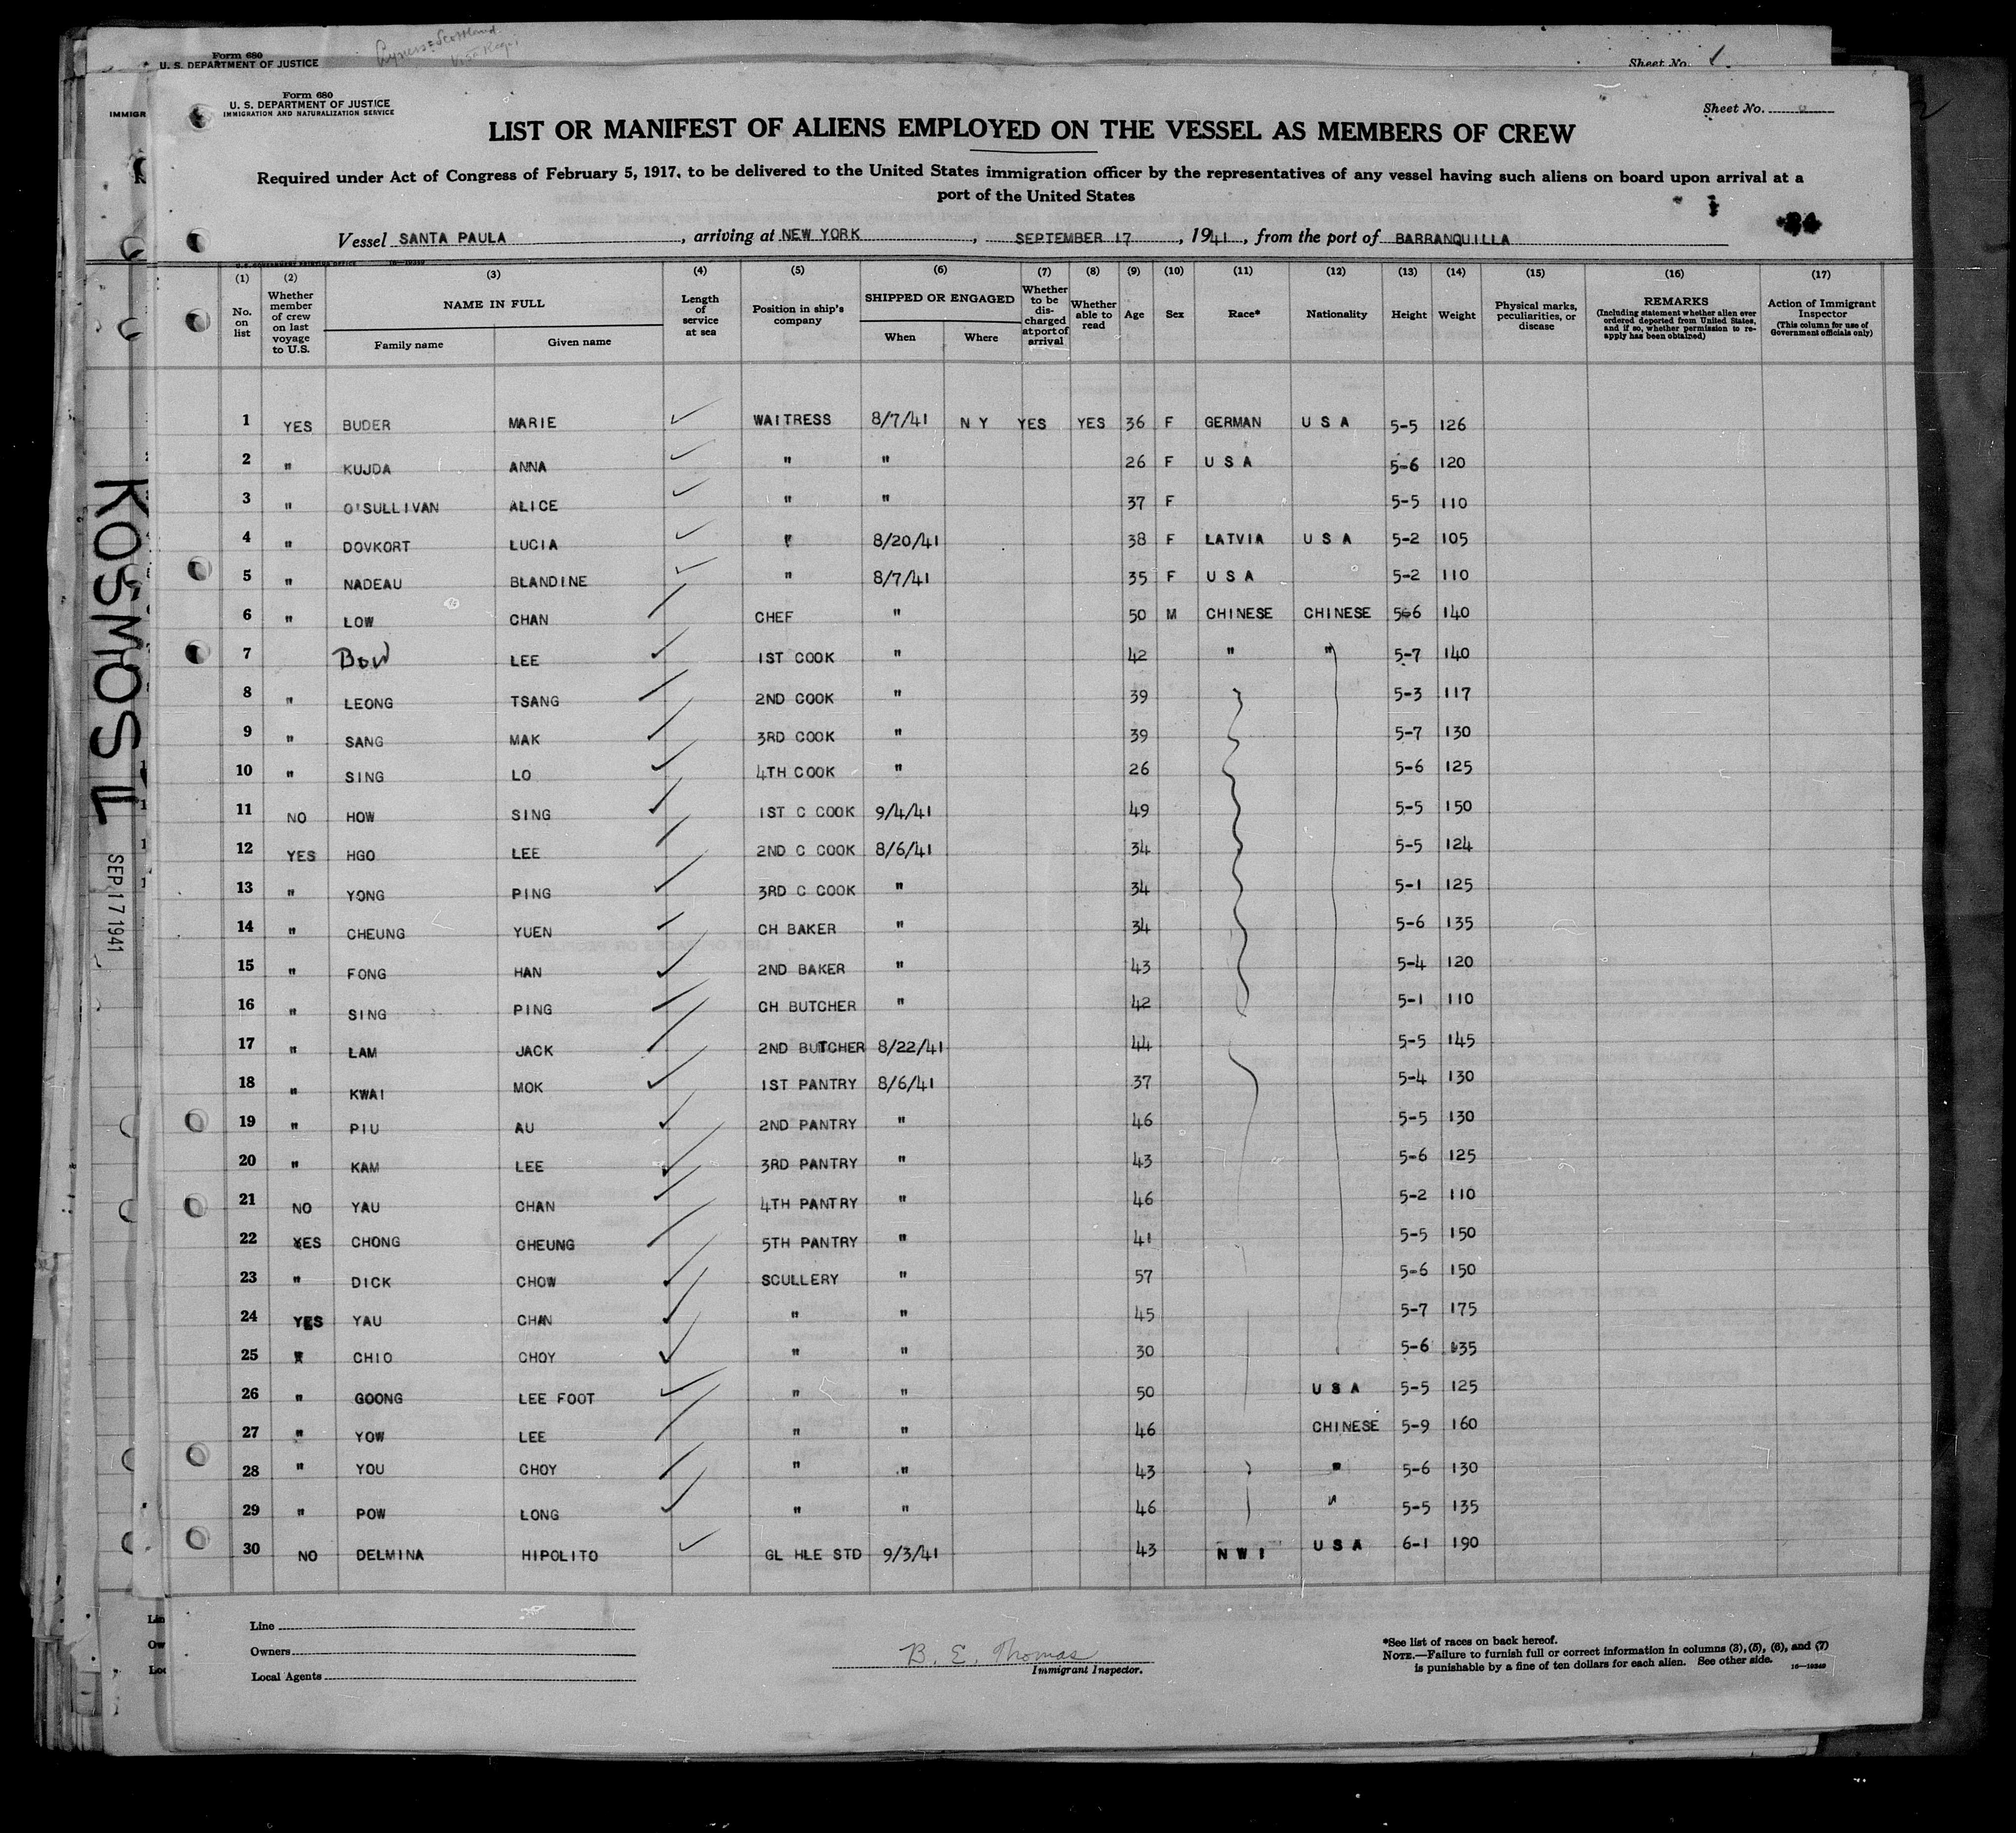 Form 680
U. S. DEPARTMENT OF JUSTICE
Sheet No. 1
IMMIGR
Form 680
U. S. DEPARTMENT OF JUSTICE
IMMIGRATION AND NATURALIZATION SERVICE
Sheet No.
LIST OR MANIFEST OF ALIENS EMPLOYED ON THE VESSEL AS MEMBERS OF CREW
Required under Act of Congress of February 5, 1917, to be delivered to the United States immigration officer by the representatives of any vessel having such aliens on board upon arrival at a
port of the United States
Vessel SANTA PAULA, arriving at NEW YORK, SEPTEMBER 17, 1941, from the port of BARRANQUILLA
(1) (2) (3) (4) (5) (6) (7) (8) (9) (10) (11) (12) (13) (14) (15) (16) (17)
No. on list
Whether member of crew on last voyage to U.S.
NAME IN FULL
Family name
Given name
Length of service at sea
Position in ship's company
SHIPPED OR ENGAGED
When
Where
Whether to be discharged at port of arrival
Whether able to read
Age
Sex
Race*
Nationality
Height
Weight
Physical marks, peculiarities, or disease
REMARKS
(Including statement whether alien ever ordered deported from United States, and if so, whether permission to re-apply has been obtained)
Action of Immigrant Inspector
(This column for use of Government officials only)
1 YES BUDER MARIE WAITRESS 8/7/41 N Y YES YES 36 F GERMAN U S A 5-5 126
2 " KUJDA ANNA " " 26 F U S A 5-6 120
3 " O'SULLIVAN ALICE " " 37 F 5-5 110
4 " DOVKORT LUCIA " 8/20/41 38 F LATVIA U S A 5-2 105
5 " NADEAU BLANDINE " 8/7/41 35 F U S A 5-2 110
6 " LOW CHAN CHEF " 50 M CHINESE CHINESE 5-6 140
7 Bow LEE 1ST COOK " 42 " " 5-7 140
8 " LEONG TSANG 2ND COOK " 39 5-3 117
9 " SANG MAK 3RD COOK " 39 5-7 130
10 " SING LO 4TH COOK " 26 5-6 125
11 NO HOW SING 1ST C COOK 9/4/41 49 5-5 150
12 YES HGO LEE 2ND C COOK 8/6/41 34 5-5 124
13 " YONG PING 3RD C COOK " 34 5-1 125
14 " CHEUNG YUEN CH BAKER " 34 5-6 135
15 " FONG HAN 2ND BAKER " 43 5-4 120
16 " SING PING CH BUTCHER " 42 5-1 110
17 " LAM JACK 2ND BUTCHER 8/22/41 44 5-5 145
18 " KWAI MOK 1ST PANTRY 8/6/41 37 5-4 130
19 " PIU AU 2ND PANTRY " 46 5-5 130
20 " KAM LEE 3RD PANTRY " 43 5-6 125
21 NO YAU CHAN 4TH PANTRY " 46 5-2 110
22 YES CHONG CHEUNG 5TH PANTRY " 41 5-5 150
23 " DICK CHOW SCULLERY " 57 5-6 150
24 YES YAU CHAN " " 45 5-7 175
25 " CHIO CHOY " " 30 5-6 135
26 " GOONG LEE FOOT " " 50 U S A 5-5 125
27 " YOW LEE " " 46 CHINESE 5-9 160
28 " YOU CHOY " " 43 " 5-6 130
29 " POW LONG " " 46 " 5-5 135
30 NO DELMINA HIPOLITO GL HLE STD 9/3/41 43 N W I U S A 6-1 190
KOSMOS
SEP 17 1941
Line
Owners
Local Agents
B. E. Thomas
Immigrant Inspector.
*See list of races on back hereof.
NOTE.—Failure to furnish full or correct information in columns (3), (5), (6), and (7)
is punishable by a fine of ten dollars for each alien. See other side.
16—10349